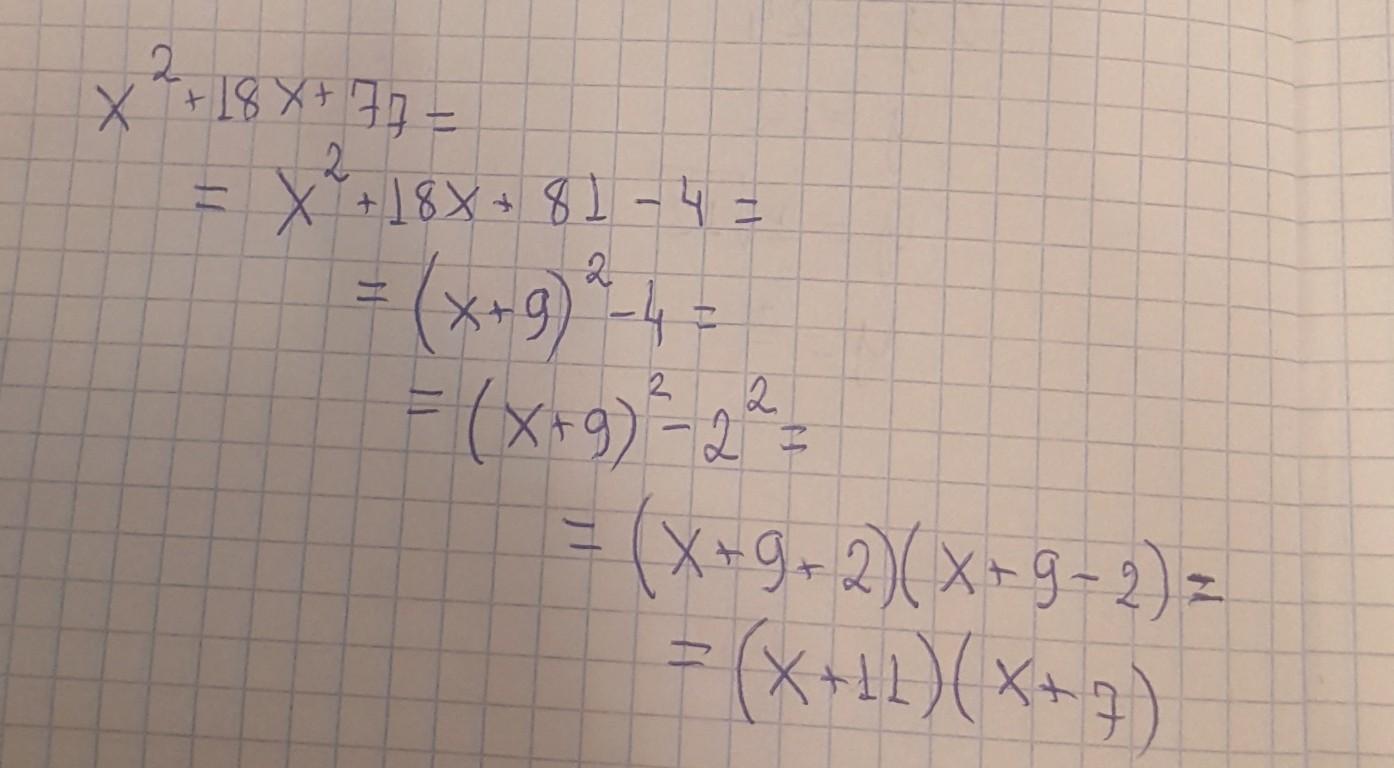 x²+18x+77=
= x²+18x+81-4=
= (x+9)²-4=
= (x+9)²-2²=
= (x+9+2)(x+9-2)=
= (x+11)(x+7)